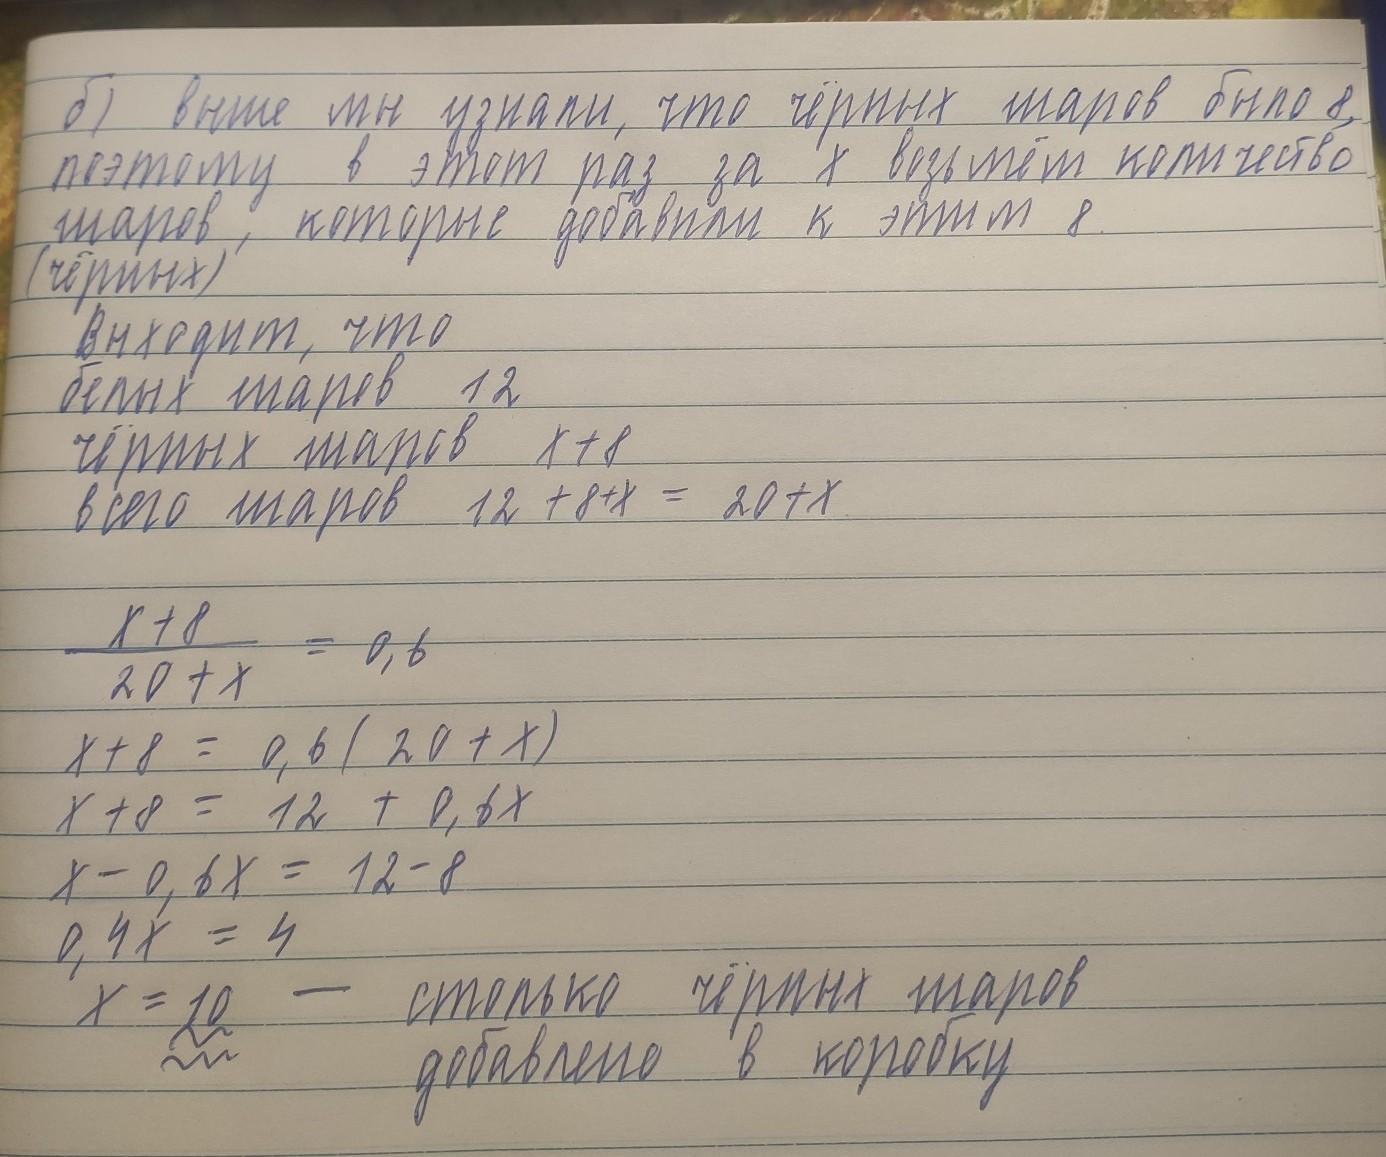 б) выше мы узнали, что чёрных шаров было 8,
поэтому в этот раз за x возьмём количество
шаров, которые добавили к этим 8.
(чёрных)
Выходит, что
белых шаров 12
чёрных шаров x+8
всего шаров 12+8+x = 20+x
x+8
20+x
= 0,6
x+8 = 0,6(20+x)
x+8 = 12 + 0,6x
x-0,6x = 12-8
0,4x = 4
x = 10 — столько чёрных шаров
добавлено в коробку